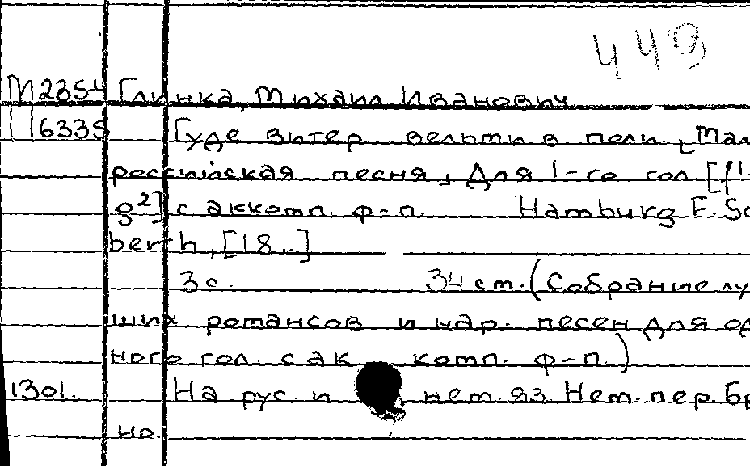 449
М2354 Глинка, Михаил Иванович
П6335 Гуде витер вельми в поли [Мал
российская песня] Для 1-го гол [f1
g2] с аккомп. ф-п. Hamburg F. Sc
berth, [18..]
3 с. 34 ст. (Собрание лу
ших романсов и нар. песен для од
ного гол. с ак комп. ф-п.)
1301. На рус. и нем. яз. Нем. пер. Бр
но.